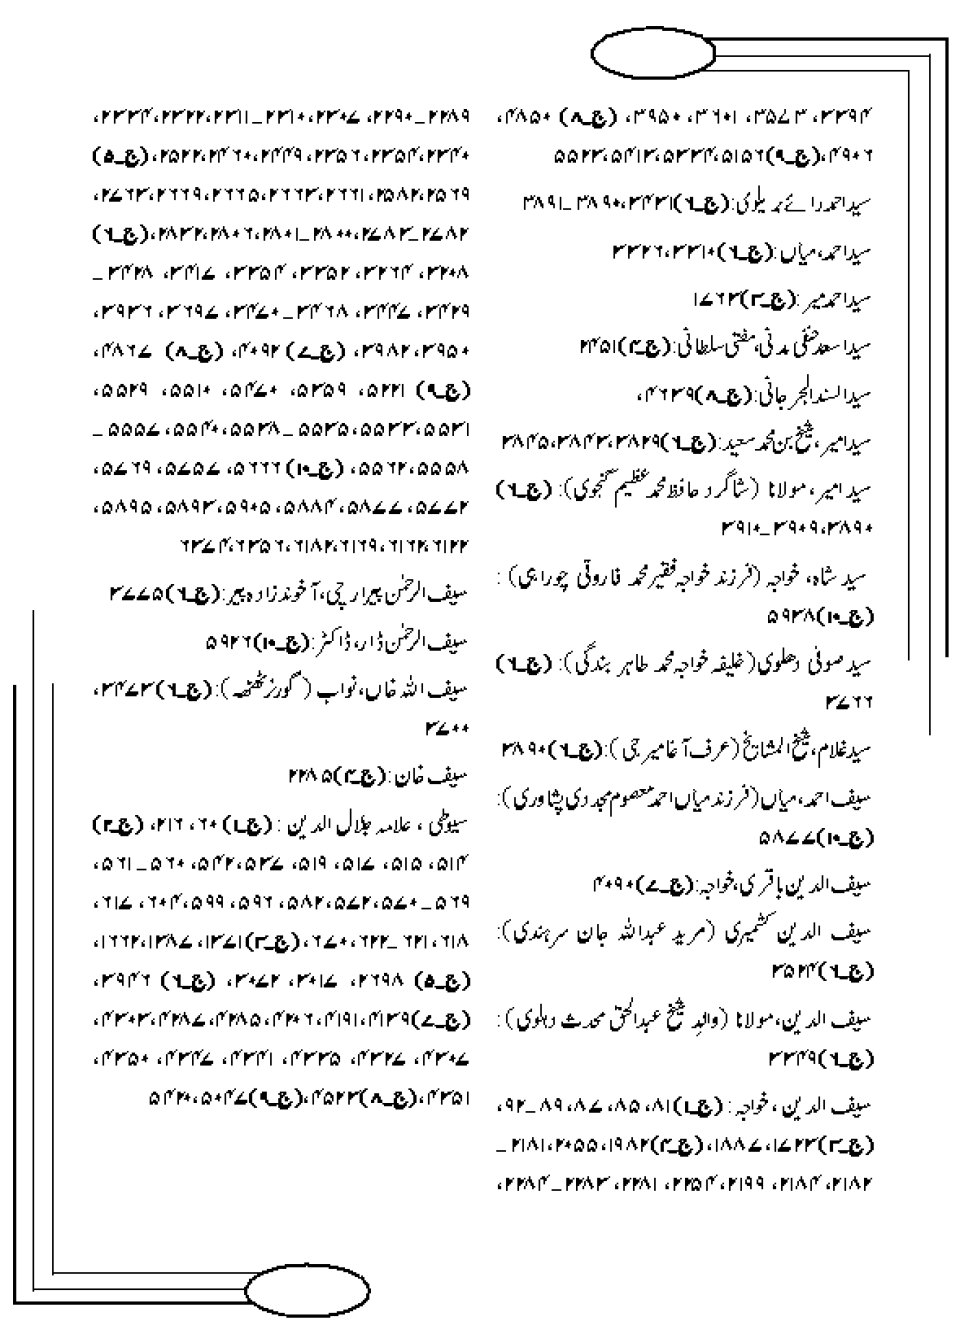 ۳۳۹۴، ۳۵۷۳، ۳۶۰۱، ۳۹۵۰، (ج_۸) ۴۸۵۰،
۴۹۰۶، (ج_۹) ۵۱۵۶، ۵۳۳۴، ۵۴۱۳، ۵۵۲۳
سید احمد رائے بریلوی: (ج_۶) ۳۴۳۱، ۳۸۹۰_۳۸۹۱
سید احمد، میاں: (ج_۶) ۳۳۱۰، ۳۳۲۶
سید احمد میر: (ج_۳) ۱۷۶۳
سید اسعد حنفی مدنی، مفتی سلطانی: (ج_۴) ۲۴۵۱
سید السند الجرجانی: (ج_۸) ۴۶۳۹،
سید امیر، شیخ بن محمد سعید: (ج_۶) ۳۸۲۹، ۳۸۴۳، ۳۸۴۵
سید امیر، مولانا (شاگرد حافظ محمد عظیم گنجوی): (ج_۶)
۳۸۹۰، ۳۹۰۹_۳۹۱۰
سید شاہ، خواجہ (فرزند خواجہ فقیر محمد فاروقی چوراہی):
(ج_۱۰) ۵۹۳۸
سید صوفی دھلوی (خلیفہ خواجہ محمد طاہر بندگی): (ج_۶)
۳۷۶۶
سید غلام، شیخ المشایخ (عرف آغا میر جی): (ج_۶) ۳۸۹۰
سیف احمد، میاں (فرزند میاں احمد معصوم مجددی پشاوری):
(ج_۱۰) ۵۸۷۷
سیف الدین باقری، خواجہ: (ج_۷) ۴۰۹۰
سیف الدین کشمیری (مرید عبداللہ جان سرہندی):
(ج_۶) ۳۵۲۴
سیف الدین، مولانا (والدِ شیخ عبدالحق محدث دہلوی):
(ج_۶) ۳۳۴۹
سیف الدین، خواجہ: (ج_۱) ۸۱، ۸۵، ۸۷، ۸۹_۹۲،
(ج_۳) ۱۷۲۳، ۱۸۸۷، (ج_۴) ۱۹۸۲، ۲۰۵۵، ۲۱۸۱_
۲۱۸۲، ۲۱۸۴، ۲۱۹۹، ۲۲۵۴، ۲۲۸۱، ۲۲۸۳_۲۲۸۴،
۲۲۸۹_۲۲۹۰، ۲۳۰۷، ۲۳۱۰_۲۳۱۱، ۲۳۲۲، ۲۳۳۴،
۲۳۴۰، ۲۳۵۴، ۲۳۵۶، ۲۴۴۹، ۲۴۶۰، ۲۵۲۲، (ج_۵)
۲۵۶۹، ۲۵۸۲، ۲۶۶۱، ۲۶۶۳، ۲۶۶۵، ۲۶۶۹، ۲۷۶۳،
۲۷۸۲_۲۷۸۳، ۲۸۰۰_۲۸۰۱، ۲۸۰۶، ۲۸۳۲، (ج_۶)
۳۲۰۸، ۳۲۶۴، ۳۳۵۲، ۳۳۵۴، ۳۴۱۷، ۳۴۲۸_
۳۴۲۹، ۳۴۴۷، ۳۴۶۸_۳۴۷۰، ۳۶۹۷، ۳۹۳۶،
۳۹۵۰، ۳۹۸۲، (ج_۷) ۴۰۹۲، (ج_۸) ۴۸۶۷،
(ج_۹) ۵۲۲۱، ۵۳۵۹، ۵۴۷۰، ۵۵۱۰، ۵۵۲۹،
۵۵۳۱، ۵۵۳۳، ۵۵۳۵_۵۵۳۸، ۵۵۴۰، ۵۵۵۷_
۵۵۵۸، ۵۵۶۲، (ج_۱۰) ۵۶۶۶، ۵۷۵۷، ۵۷۶۹،
۵۷۷۲، ۵۸۷۷، ۵۸۸۴، ۵۹۰۵، ۵۸۹۳، ۵۸۹۵،
۶۱۲۲، ۶۱۲۶، ۶۱۲۹، ۶۱۸۲، ۶۳۵۶، ۶۳۷۴
سیف الرحمٰن پیر ارچی، آخوندزادہ پیر: (ج_۶) ۳۷۷۵
سیف الرحمٰن ڈار، ڈاکٹر: (ج_۱۰) ۵۹۲۶
سیف اللہ خاں، نواب (گورنر ٹھٹھہ): (ج_۶) ۳۴۷۳،
۳۷۰۰
سیف خان: (ج_۴) ۲۲۸۵
سیوطی، علامہ جلال الدین: (ج_۱) ۶۰، ۲۱۶، (ج_۲)
۵۱۴، ۵۱۵، ۵۱۷، ۵۱۹، ۵۳۷، ۵۴۲، ۵۶۰_۵۶۱،
۵۶۹_۵۷۰، ۵۷۲، ۵۸۲، ۵۹۶، ۵۹۹، ۶۰۴، ۶۱۷،
۶۱۸، ۶۲۱_۶۲۲، ۶۷۰، (ج_۳) ۱۳۷۱، ۱۳۸۷، ۱۶۶۲،
(ج_۵) ۲۶۹۸، ۳۰۱۷، ۳۰۷۲، (ج_۶) ۳۹۴۶،
(ج_۷) ۴۱۳۹، ۴۱۹۱، ۴۲۰۶، ۴۲۸۵، ۴۲۸۷، ۴۳۰۳،
۴۳۰۷، ۴۳۲۷، ۴۳۳۵، ۴۳۴۱، ۴۳۴۷، ۴۳۵۰،
۴۳۵۱، (ج_۸) ۴۵۲۳، (ج_۹) ۵۰۴۷، ۵۴۲۰